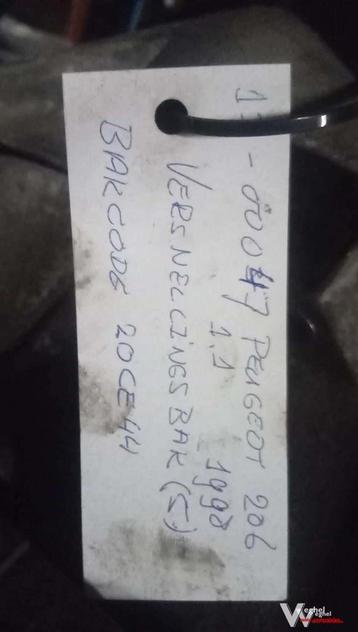 -00047 PEUGEOT 206
1.1 1998
VERSNELLINGSBAK (5)
BAKCODE 20CE44
Weghel